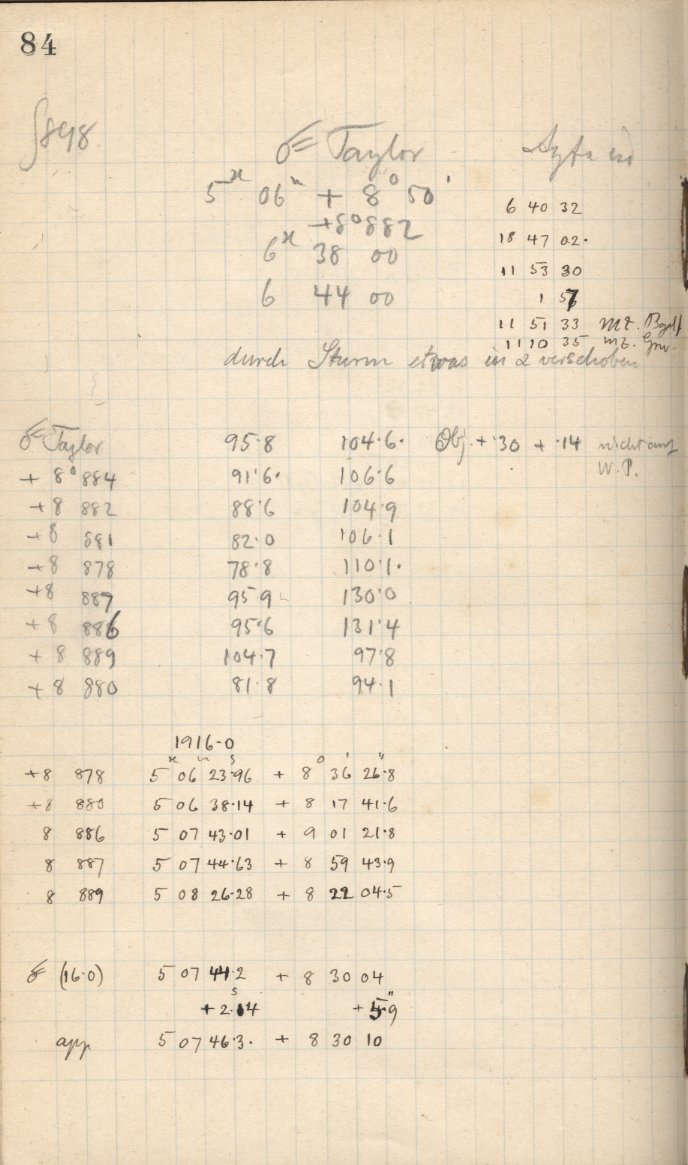 84
898
☄ Taylor
5ʰ 06ᵐ + 8° 50'
+8°882
6ʰ 38 00
6 44 00
6 40 32
18 47 02.
11 53 30
1 57
11 51 33 mt.
11 10 35 mt.
durch Sturm etwas in α verschoben
☄ Taylor 95.8 104.6. Obj. + .30 + .14 nicht auf
W.P.
+ 8° 884 91.6. 106.6
+ 8 882 88.6 104.9
+ 8 881 82.0 106.1
+ 8 878 78.8 110.1.
+ 8 887 95 9 130.0
+ 8 886 95.6 131.4
+ 8 889 104.7 97.8
+ 8 880 81.8 94.1
1916.0
+8 878 5ʰ 06ᵐ 23ˢ.96 + 8° 36' 26".8
+8 880 5 06 38.14 + 8 17 41.6
8 886 5 07 43.01 + 9 01 21.8
8 887 5 07 44.63 + 8 59 43.9
8 889 5 08 26.28 + 8 22 04.5
☄ (16.0) 5 07 44.2 + 8 30 04
+ 2ˢ.14 + 5".9
app 5 07 46.3. + 8 30 10